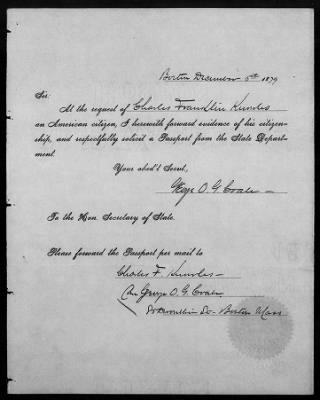 Boston December 5th 1879
Sir:
At the request of Charles Franklin
an American citizen, I herewith forward evidence of his citizen-
ship, and respectfully solicit a Passport from the State Depart-
ment.
Your obed't Servt,
Geo O. G. Coale
To the Hon. Secretary of State.
Please forward the Passport per mail to
Charles F.
Care George O. G. Coale
St Boston Mass